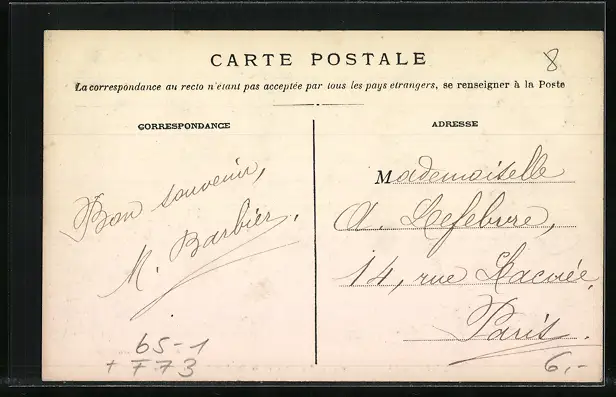 CARTE POSTALE
8
La correspondance au recto n'étant pas acceptée par tous les pays etrangers, se renseigner à la Poste
CORRESPONDANCE
Bon souvenir,
M. Barbier.
65-1
+ 773
ADRESSE
Mademoiselle
A. Lefebvre,
14, rue Lacuée,
Paris.
6,-